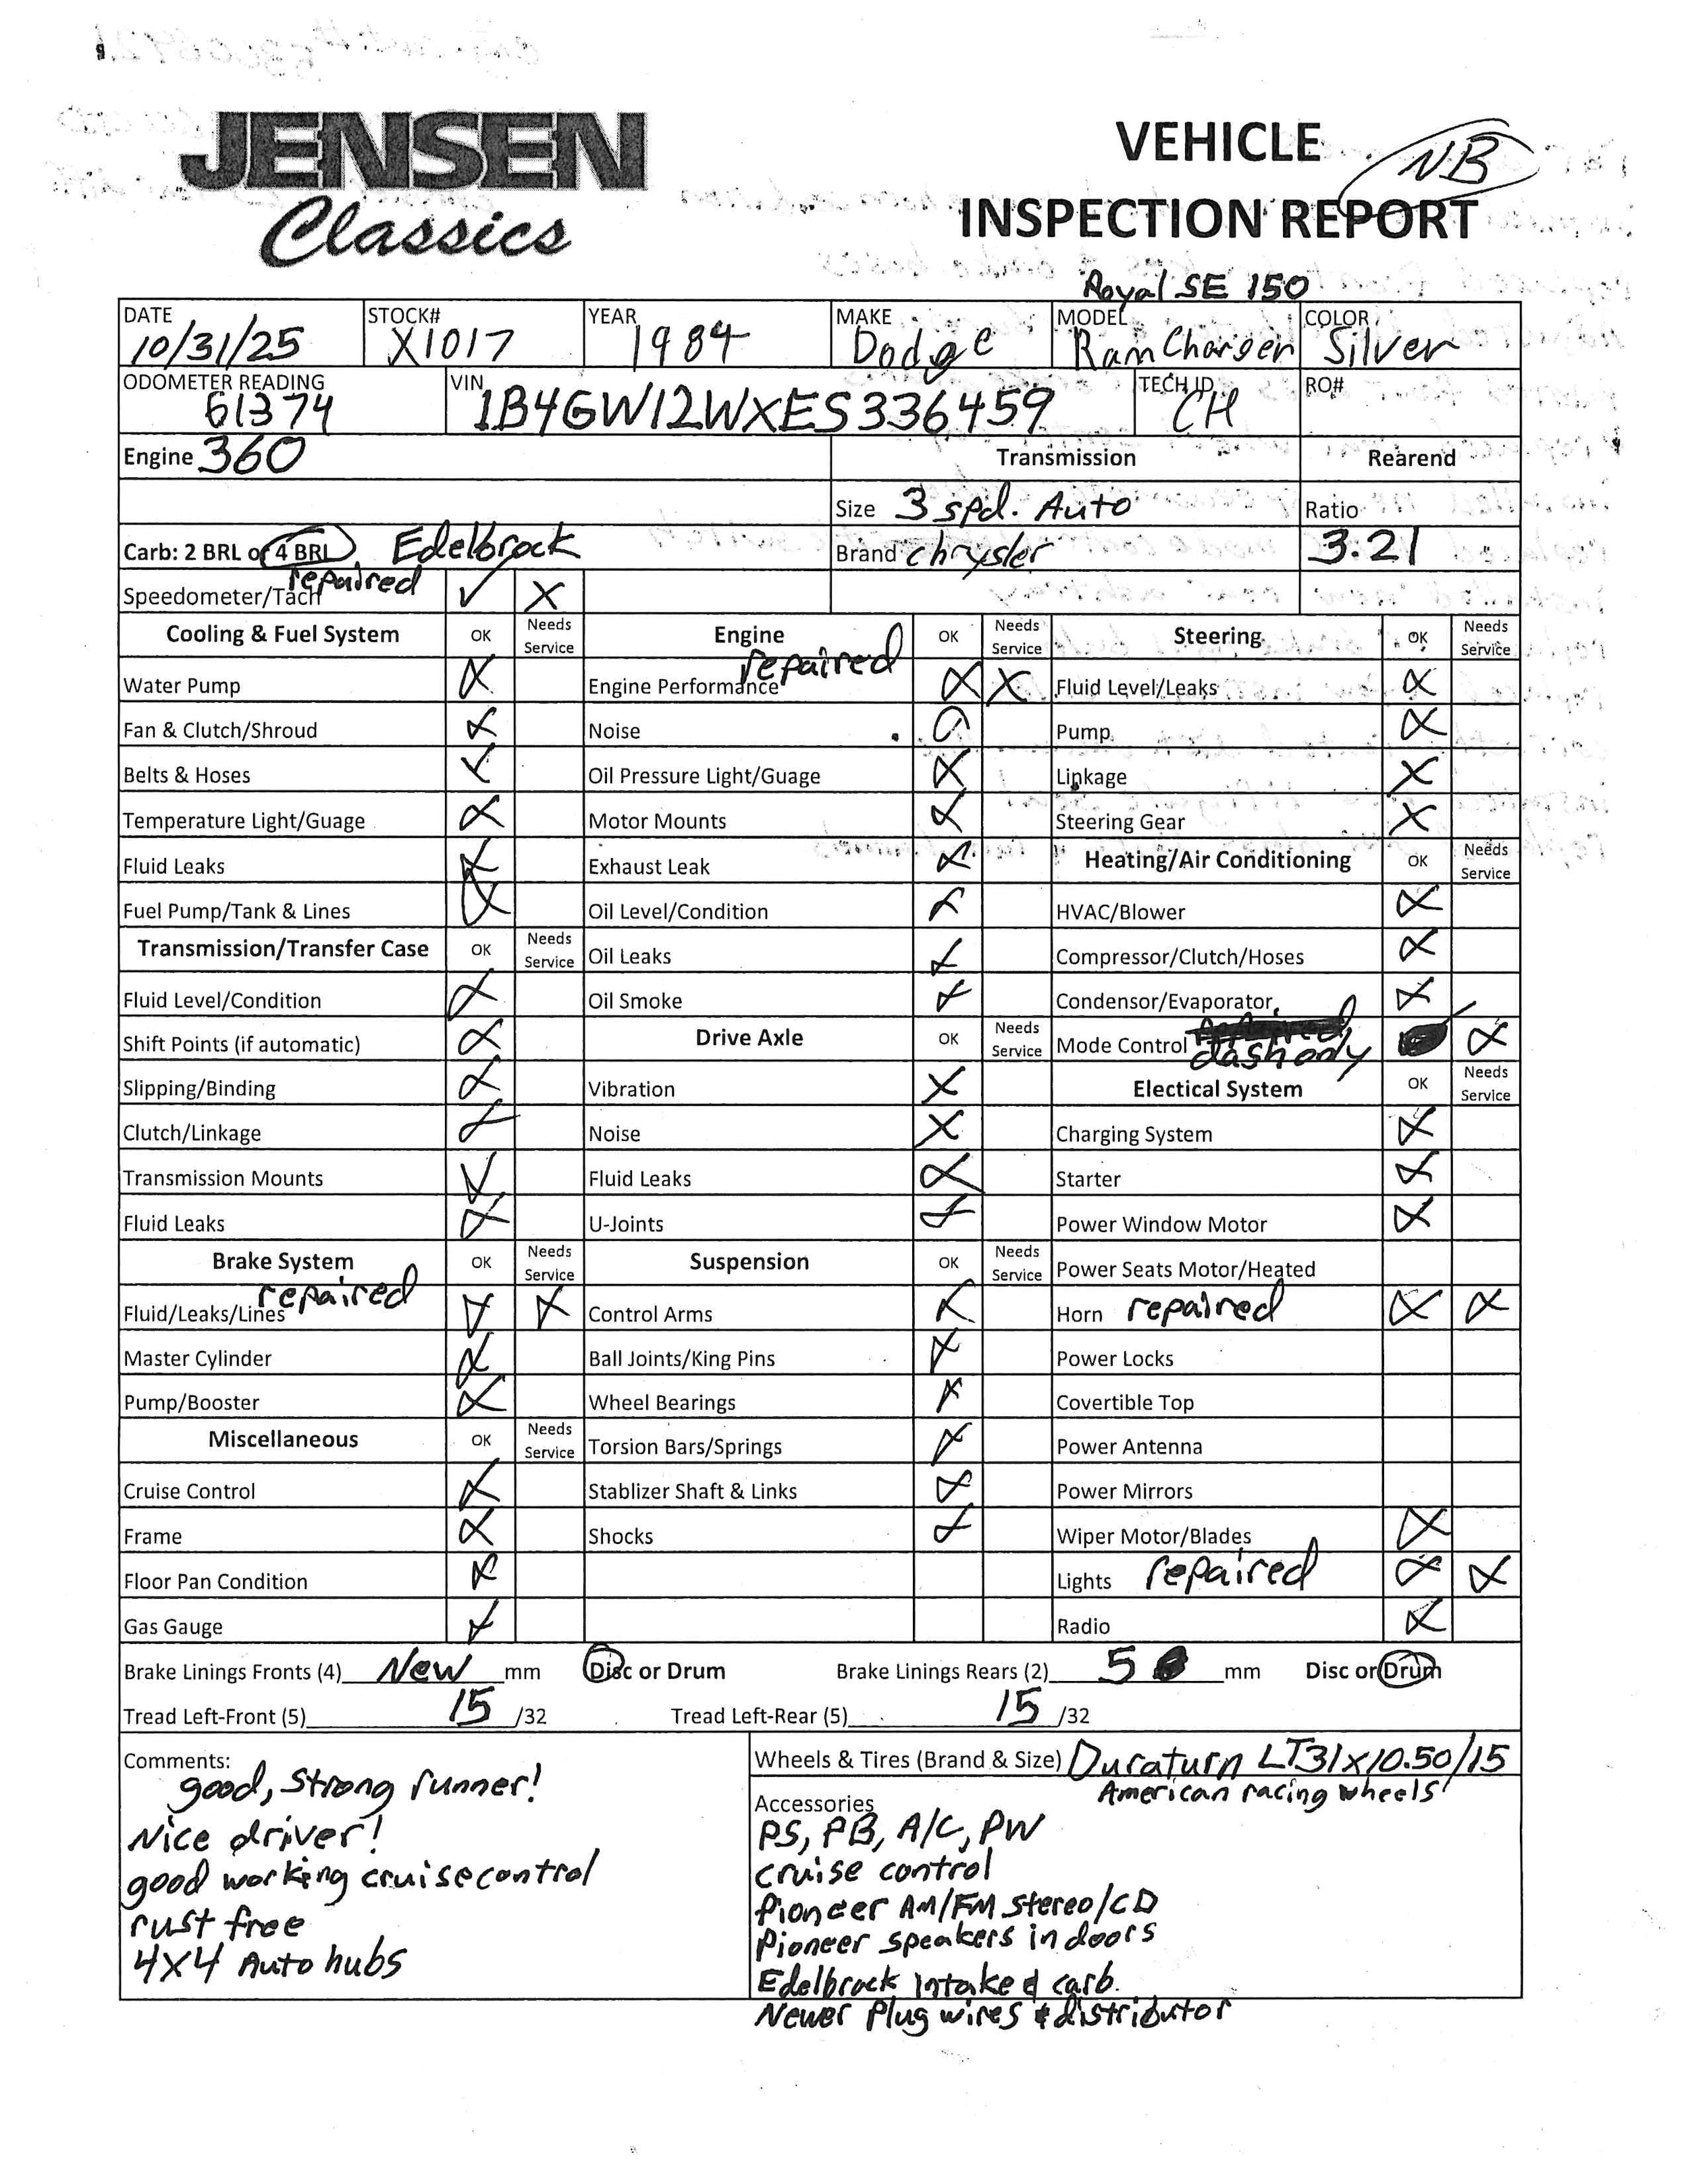 JENSEN
Classics
VEHICLE
NB
INSPECTION REPORT
Royal SE 150
DATE 10/31/25 STOCK# X1017 YEAR 1984 MAKE Dodge MODEL RamCharger COLOR Silver
ODOMETER READING 61374 VIN 1B4GW12WXES336459 TECH ID CH RO#
Engine 360 Transmission Rearend
Size 3 spd. Auto Ratio
Carb: 2 BRL or 4 BRL Edelbrock Brand chrysler 3.21
Speedometer/Tach repaired ✓ X
Cooling & Fuel System OK Needs Service Engine OK Needs Service Steering OK Needs Service
Water Pump X Engine Performance repaired X X Fluid Level/Leaks X
Fan & Clutch/Shroud X Noise Pump X
Belts & Hoses ✓ Oil Pressure Light/Guage X Linkage X
Temperature Light/Guage X Motor Mounts X Steering Gear X
Fluid Leaks X Exhaust Leak X Heating/Air Conditioning OK Needs Service
Fuel Pump/Tank & Lines X Oil Level/Condition X HVAC/Blower X
Transmission/Transfer Case OK Needs Service Oil Leaks X Compressor/Clutch/Hoses X
Fluid Level/Condition X Oil Smoke X Condensor/Evaporator X
Shift Points (if automatic) X Drive Axle OK Needs Service Mode Control dash only X
Slipping/Binding X Vibration X Electical System OK Needs Service
Clutch/Linkage X Noise X Charging System X
Transmission Mounts ✓ Fluid Leaks X Starter X
Fluid Leaks X U-Joints X Power Window Motor X
Brake System OK Needs Service Suspension OK Needs Service Power Seats Motor/Heated
Fluid/Leaks/Lines repaired X X Control Arms X Horn repaired X X
Master Cylinder X Ball Joints/King Pins X Power Locks
Pump/Booster X Wheel Bearings X Covertible Top
Miscellaneous OK Needs Service Torsion Bars/Springs X Power Antenna
Cruise Control X Stablizer Shaft & Links X Power Mirrors
Frame X Shocks X Wiper Motor/Blades X
Floor Pan Condition X Lights repaired X X
Gas Gauge X Radio X
Brake Linings Fronts (4) New mm Disc or Drum Brake Linings Rears (2) 5 mm Disc or Drum
Tread Left-Front (5) 15 /32 Tread Left-Rear (5) 15 /32
Comments:
good, strong runner!
Nice driver!
good working cruise control
rust free
4X4 Auto hubs
Wheels & Tires (Brand & Size) Duraturn LT31x10.50/15
American racing wheels
Accessories
PS, PB, A/C, PW
cruise control
Pioneer AM/FM stereo/CD
Pioneer speakers in doors
Edelbrock intake & carb.
Newer Plug wires & distributor